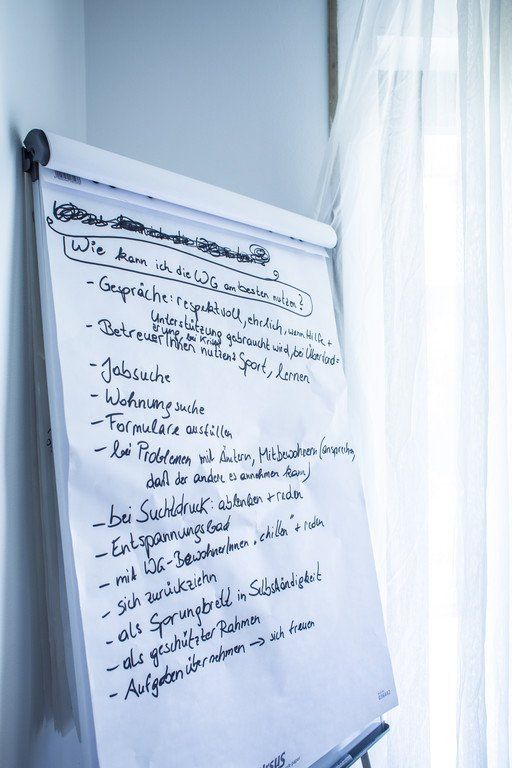 Wie kann ich die WG am besten nutzen?
- Gespräche: respektvoll, ehrlich, wenn Hilfe +
Unterstützung gebraucht wird, bei Überford=
erung, bei Krise
- BetreuerInnen nutzen: Sport, lernen
- Jobsuche
- Wohnungsuche
- Formulare ausfüllen
- bei Problemen mit Ämtern, Mitbewohnern (ansprechen,
daß der andere es annehmen kann)
- bei Suchtdruck: ablenken + reden
- Entspannungsbad
- mit WG-BewohnerInnen „chillen" + reden
- sich zurückziehn
- als Sprungbrett in Selbständigkeit
- als geschützter Rahmen
- Aufgaben übernehmen → sich freuen